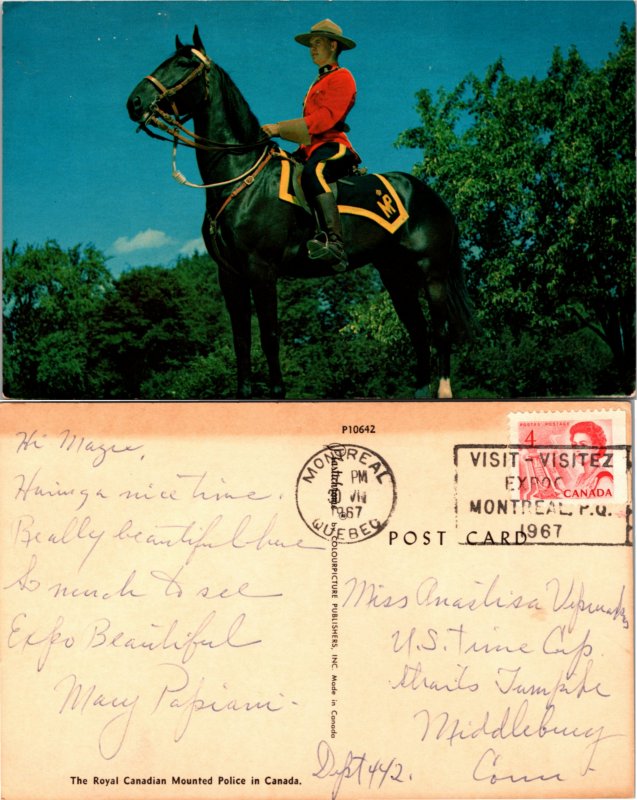 MP
P10642
Hi Magie,
Having a nice time.
Really beautiful here
So much to see
Expo Beautiful
Mary Papiani -
The Royal Canadian Mounted Police in Canada.
Plastichrome ® by COLOURPICTURE PUBLISHERS, INC. Made in Canada
MONTREAL
PM
VII
1967
QUEBEC
POSTES POSTAGE
4
CANADA
VISIT - VISITEZ
EXPO67
MONTREAL, P.Q.
1967
POST CARD
Miss
U.S. Time Cap.
Straits Turnpike
Middlebury
Conn
Dept 442.